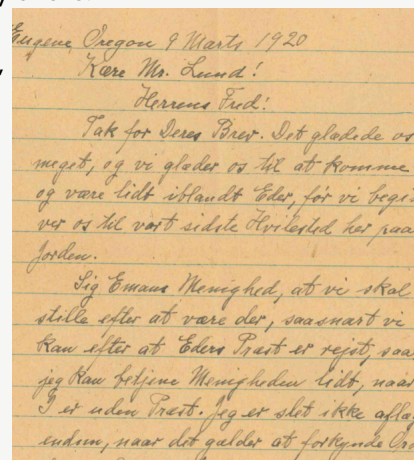 Eugene, Oregon 9 Marts 1920
Kære Mr. Lund!
Herrens Fred!
Tak for Deres Brev. Det glædede os
meget, og vi glæder os til at komme
og være lidt iblandt Eder, før vi begi-
ver os til vort sidste Hvilested her paa
Jorden.
Sig Emaus Menighed, at vi skal
stille efter at være der, saasnart vi
kan efter at Eders Præst er rejst, saa
jeg kan betjene Menigheden lidt, naar
I er uden Præst. Jeg er slet ikke aflæ
endsm, naar det gælder at forkynde Ord